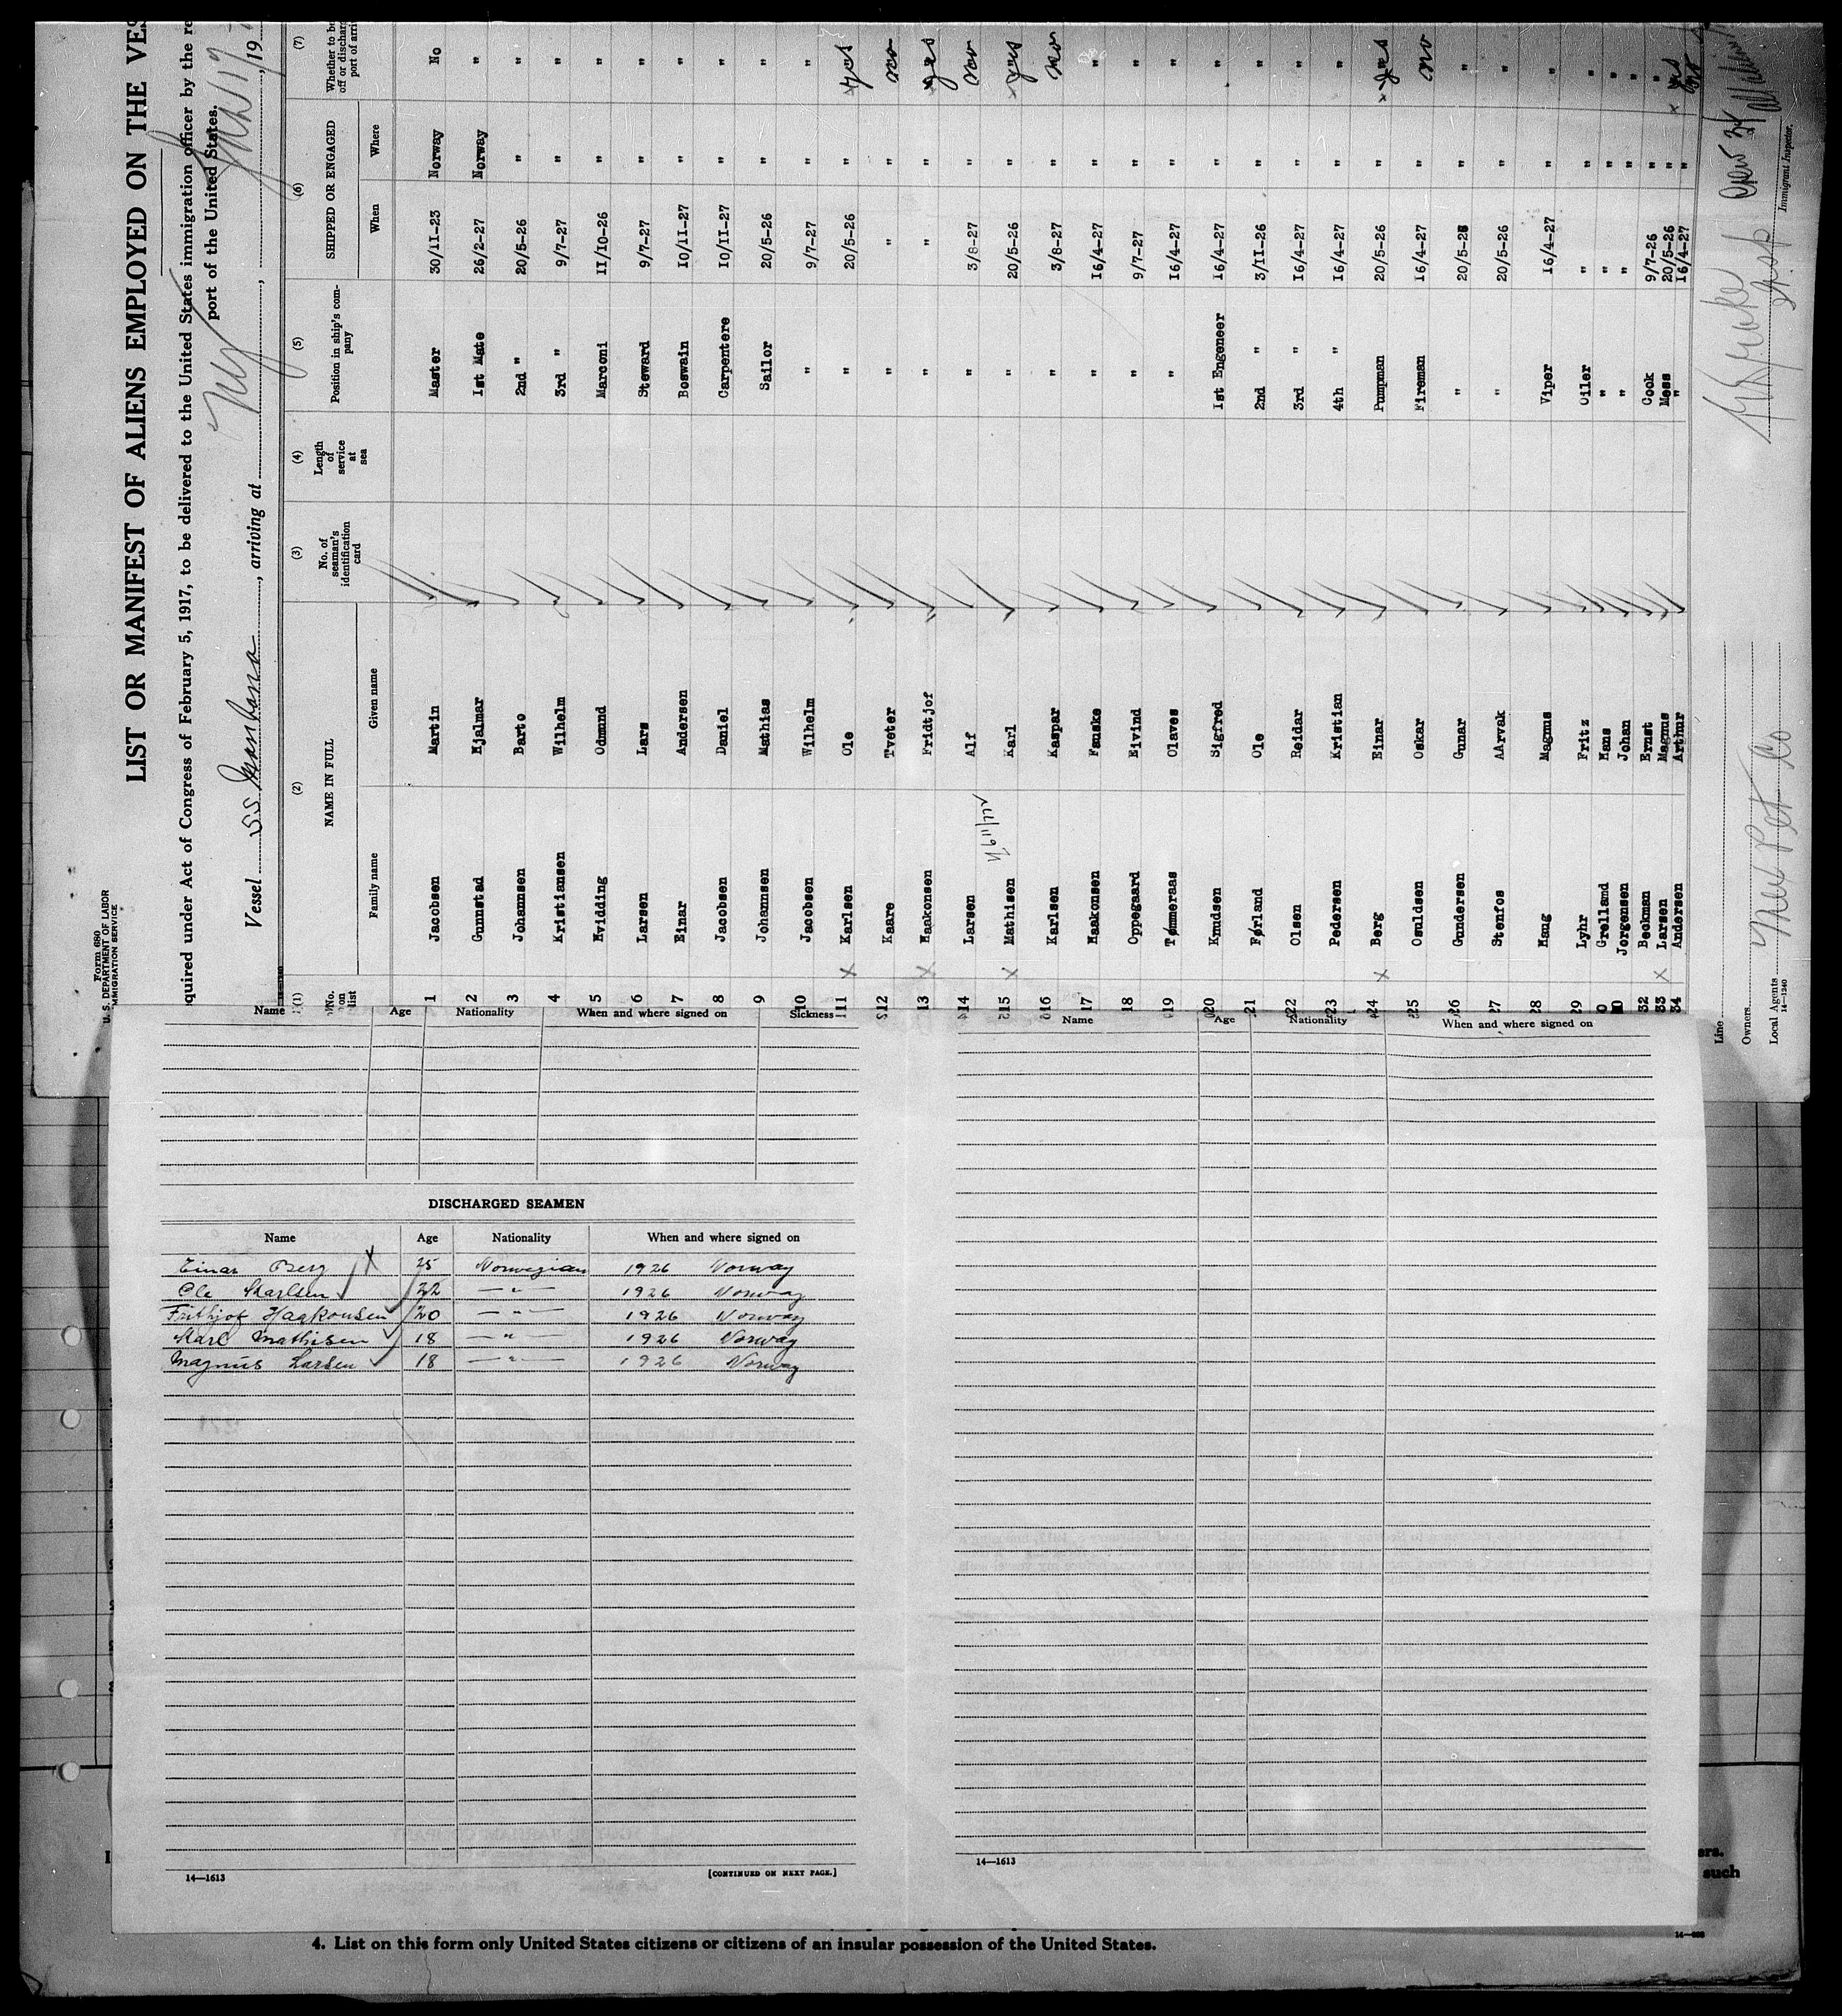 Form 680
U. S. DEPARTMENT OF LABOR
IMMIGRATION SERVICE
LIST OR MANIFEST OF ALIENS EMPLOYED ON THE VES
quired under Act of Congress of February 5, 1917, to be delivered to the United States immigration officer by the re
port of the United States.
Vessel SS , arriving at NY , , 19
(1) (2) (3) (4) (5) (6) (7)
No. on list NAME IN FULL No. of seaman's identification card Length of service at sea Position in ship's company SHIPPED OR ENGAGED Whether to be off or discharg port of arri
Family name Given name When Where
1 Jacobsen Martin Master 30/11-23 Norway No
2 Gunnstad Hjalmar 1st Mate 26/2-27 Norway "
3 Johannsen Barto 2nd " 20/5-26 " "
4 Kristiansen Wilhelm 3rd " 9/7-27 " "
5 Hvidding Odmund Marconi 11/10-26 " "
6 Larsen Lars Steward 9/7-27 " "
7 Einar Andersen Boswain 10/11-27 " "
8 Jacobsen Daniel Carpentere 10/11-27 " "
9 Johannsen Mathias Sailor 20/5-26 " "
10 Jacobsen Wilhelm " 9/7-27 " "
11 X Karlsen Ole " 20/5-26 " x yes
12 Kaare Tveter " " " no
13 X Haakonsen Fridtjof " " " x yes
14 Larsen Alf " 3/8-27 " no
15 X Mathisen Karl " 20/5-26 " x yes
16 Karlsen Kaspar " 3/8-27 " no
17 Haakonsen Fauske " 16/4-27 " "
18 Oppegaard Eivind " 9/7-27 " "
19 Tømmeraas Olaves " 16/4-27 " "
20 Knudsen Sigfred 1st Engeneer 16/4-27 " "
21 Førland Ole 2nd " 3/11-26 " "
22 Olsen Reidar 3rd " 16/4-27 " "
23 Pedersen Kristian 4th " 16/4-27 " "
24 X Berg Einar Pumpman 20/5-26 " x yes
25 Osuldsen Oskar Fireman 16/4-27 " no
26 Gundersen Gunar " 20/5-26 " "
27 Stenfos AArvak " 20/5-26 " "
28 Haug Magnus Viper 16/4-27 " "
29 Lyhr Fritz Oiler " " "
0 Grelland Hans " " " "
Jorgensen Johan " " " "
32 Beckman Ernst Cook 9/7-26 " "
33 X Larsen Magnus Mess 20/5-26 " x yes
34 Andersen Arthur " 16/4-27 " no
Line
Owners
Local Agents
14—1240
Crew 34
Immigrant Inspector.
Name Age Nationality When and where signed on Sickness
DISCHARGED SEAMEN
Name Age Nationality When and where signed on
Einar Berg X 25 Norwegian 1926 Norway
Ole Karlsen 22 — " — 1926 Norway
Frithjof Haakonsen 20 — " — 1926 Norway
Karl Mathisen 18 — " — 1926 Norway
Magnus Larsen 18 — " — 1926 Norway
14—1613 [CONTINUED ON NEXT PAGE.]
Name Age Nationality When and where signed on
14—1613
ers.
such
4. List on this form only United States citizens or citizens of an insular possession of the United States.